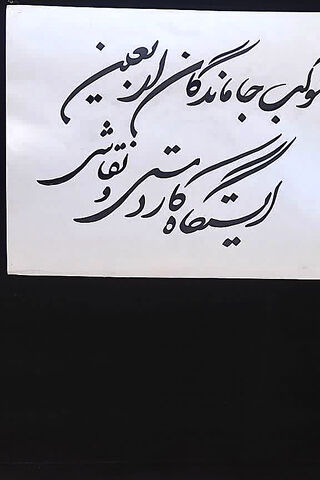 موکب جاماندگان اربعین
ایستگاه کاردستی و نقاشی